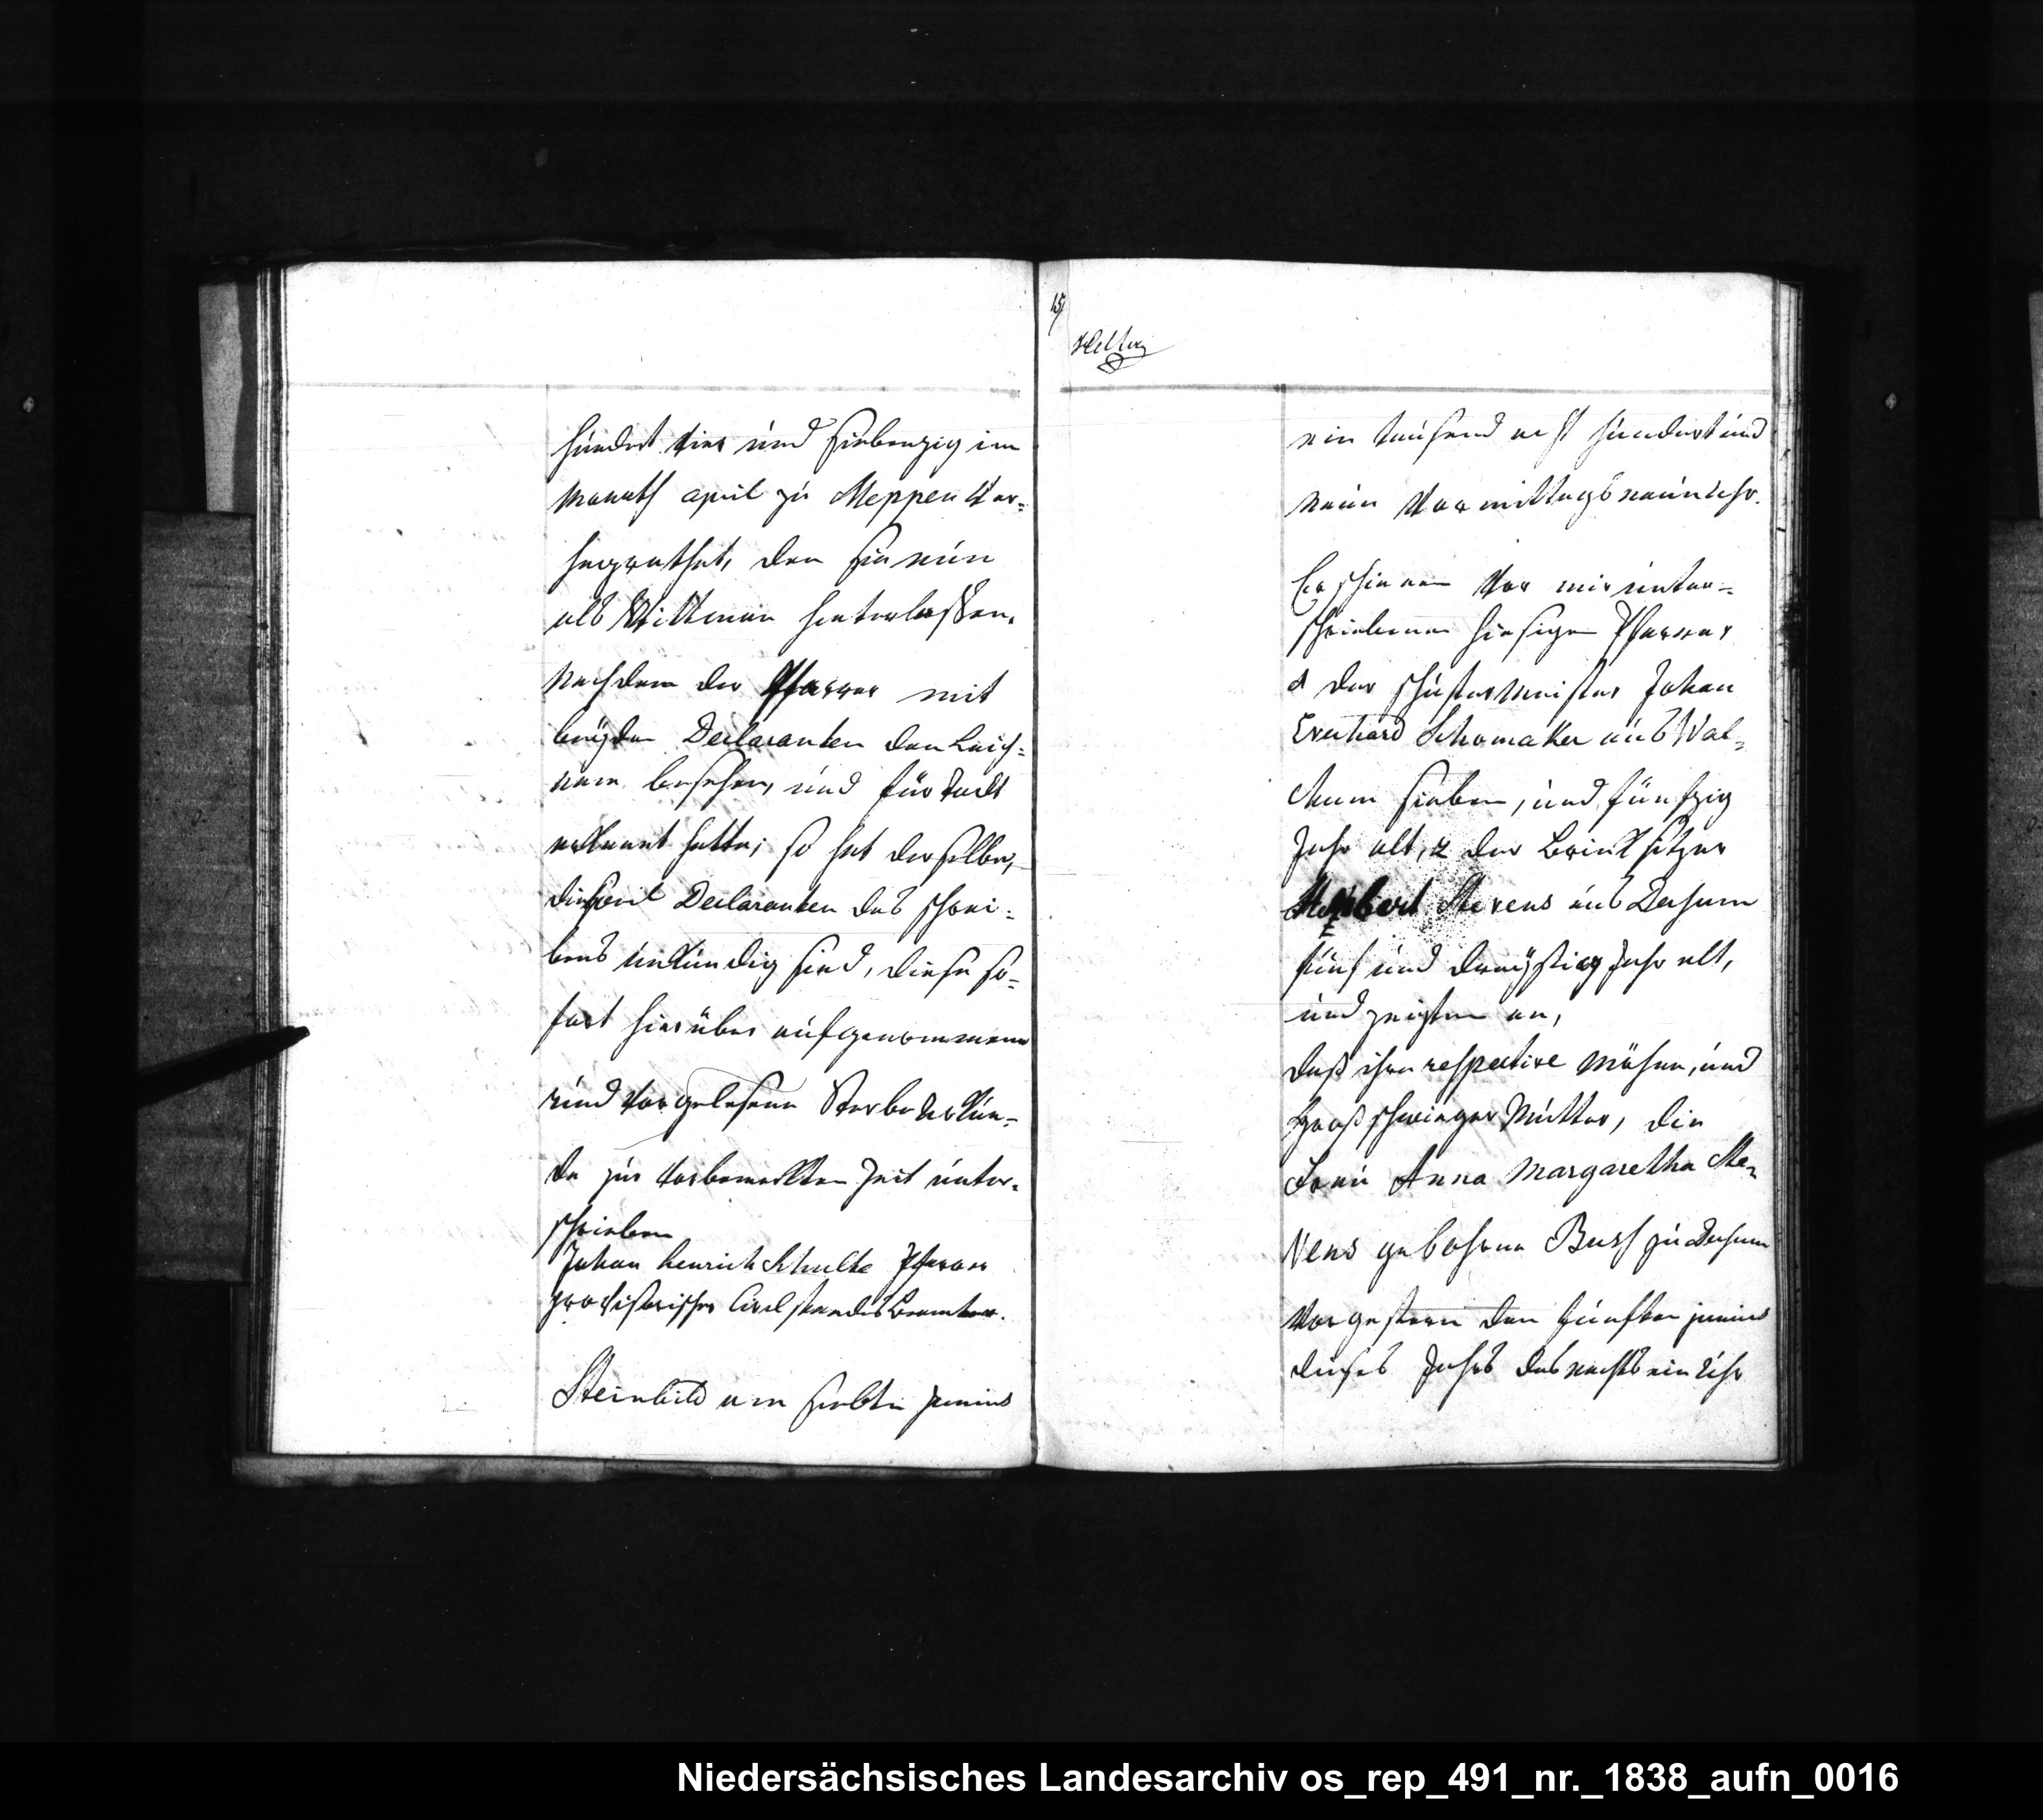 hundert vier und siebenzig im
Monath april zu Meppen Ver=
heyrathet, den sie nun
als Wittman hinterlassen.
Nachdem der Pfarrer mit
beyden Declaranten den Leich=
nam besehen, und für Todt
erkannt hatte; so hat derselbe,
dieweil Declaranten des schrei=
bens unkündig sind, diese so=
fort hierüber aufgenommene
und vorgelesene Sterbe Urkun=
de zur vorbemerkten Zeit unter=
schrieben
Johan Henrich Schulte Pfarrer
provisorischer Civilstandes Beamter.
Steinbild am siebten junius
15
ein tausend acht hundert und
neun Vormittags neun Uhr.
Erschienen Vor mir unter=
schriebenen hiesigen Pfarrer
1 der schustermeister Johan
Everhard Schomaker aus Wal=
chum sieben, und fünfzig
Jahr alt, 2 der Brinksitzer
Stevens aus Dersum
fünf und dreyßig Jahr alt,
und zeigten an,
daß ihre respective Möhne, und
Großschwieger Mutter, die
Frau Anna Margaretha Ste=
vens gebohrne Buss zu Dersum
Vorgestern den fünften junius
dieses Jahrs des nachts ein Uhr
Niedersächsisches Landesarchiv os_rep_491_nr._1838_aufn_0016